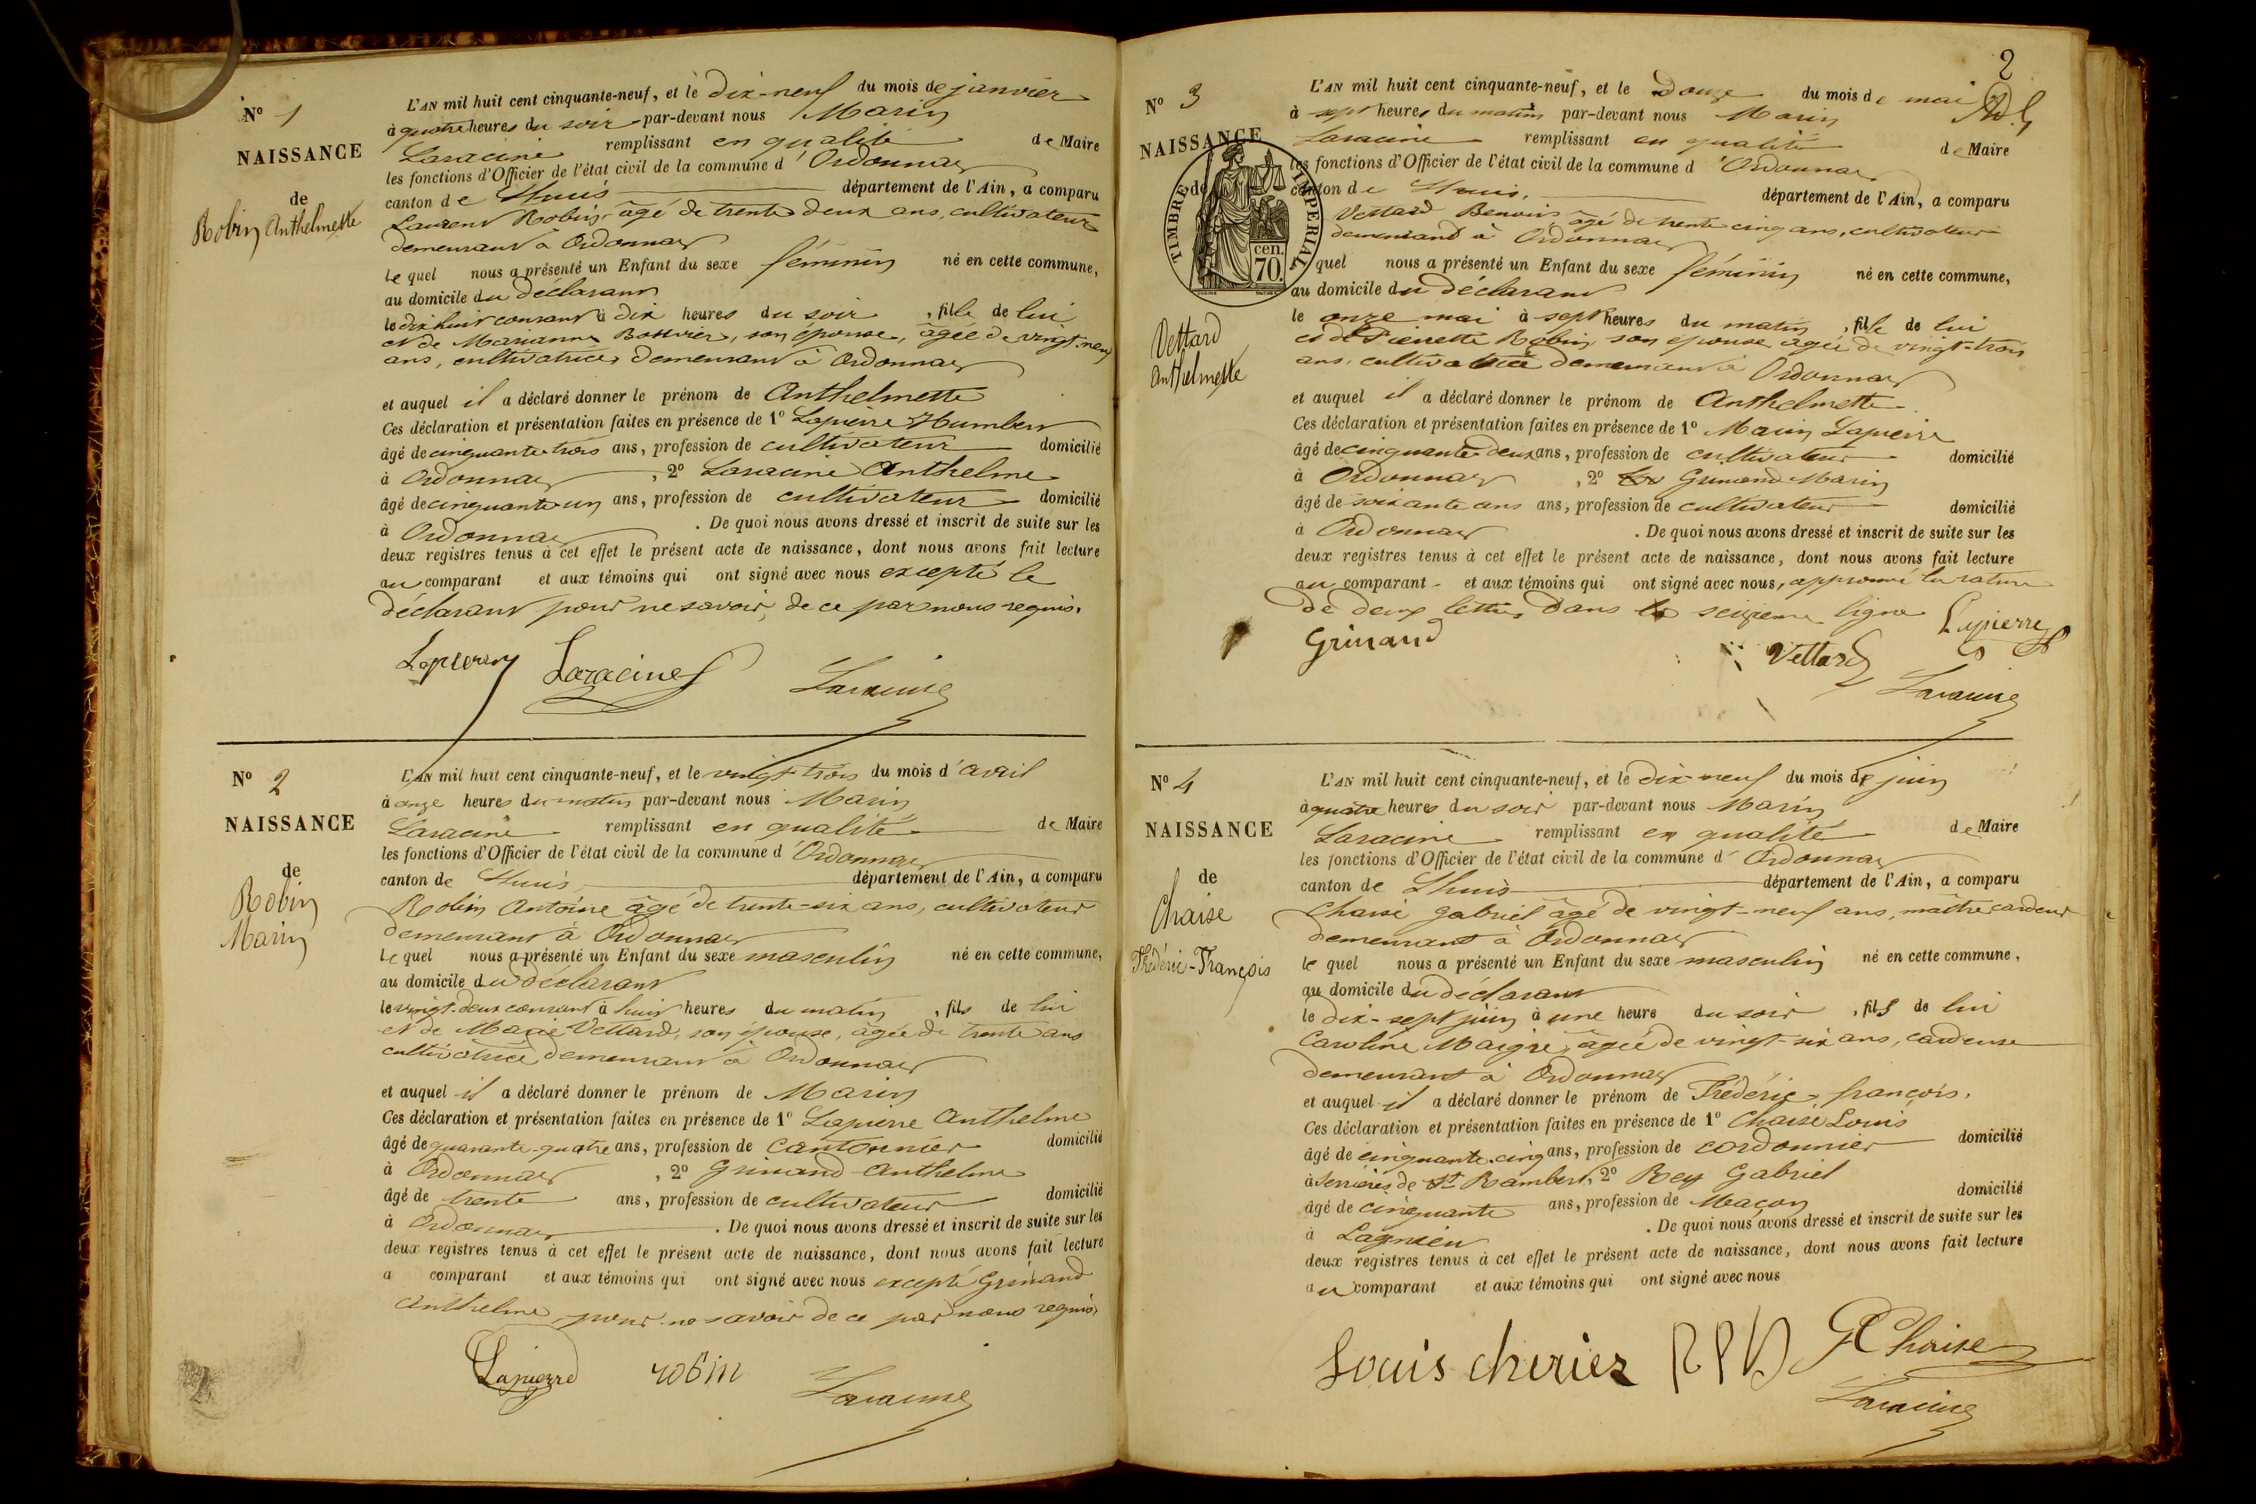 N° 1
NAISSANCE
de
Robin Anthelmette
L'AN mil huit cent cinquante-neuf, et le dix-neuf du mois de janvier
à quatre heures du soir par-devant nous Marin
Laracine remplissant en qualité de Maire
les fonctions d'Officier de l'état civil de la commune d'Ordonnaz
canton de Lhuis département de l'Ain, a comparu
Laurent Robin, âgé de trente deux ans, cultivateur
demeurant à Ordonnaz
le quel nous a présenté un Enfant du sexe féminin né en cette commune,
au domicile du déclarant
le dix huit courant à dix heures du soir, fille de lui
et de Marianne, son épouse, âgée de vingt-neuf
ans, cultivatrice demeurant à Ordonnaz
et auquel il a déclaré donner le prénom de Anthelmette
Ces déclaration et présentation faites en présence de 1° Lapierre Humbert
âgé de cinquante trois ans, profession de cultivateur domicilié
à Ordonnaz, 2° Laracine Anthelme
âgé de cinquante un ans, profession de cultivateur domicilié
à Ordonnaz. De quoi nous avons dressé et inscrit de suite sur les
deux registres tenus à cet effet le présent acte de naissance, dont nous avons fait lecture
au comparant et aux témoins qui ont signé avec nous excepté le
déclarant pour ne savoir, de ce par nous requis.
Lapierre Laracine Laracine
N° 2
NAISSANCE
de
Robin
Marin
L'AN mil huit cent cinquante-neuf, et le vingt-trois du mois d'avril
à onze heures du matin par-devant nous Marin
Laracine remplissant en qualité de Maire
les fonctions d'Officier de l'état civil de la commune d'Ordonnaz
canton de Lhuis département de l'Ain, a comparu
Robin Antoine âgé de trente-six ans, cultivateur
demeurant à Ordonnaz
le quel nous a présenté un Enfant du sexe masculin né en cette commune,
au domicile du déclarant
le vingt-deux courant à huit heures du matin, fils de lui
et de Marie Vettard, son épouse, âgée de trente ans
cultivatrice demeurant à Ordonnaz
et auquel il a déclaré donner le prénom de Marin
Ces déclaration et présentation faites en présence de 1° Lapierre Anthelme
âgé de quarante-quatre ans, profession de cantonnier domicilié
à Ordonnaz, 2° Grinand Anthelme
âgé de trente ans, profession de cultivateur domicilié
à Ordonnaz. De quoi nous avons dressé et inscrit de suite sur les
deux registres tenus à cet effet le présent acte de naissance, dont nous avons fait lecture
a comparant et aux témoins qui ont signé avec nous excepté Grinand
Anthelme pour ne savoir de ce par nous requis.
Lapierre robin Laracine
2
N° 3
NAISSANCE
de
TIMBRE IMPERIAL
70 cen.
Vettard
Anthelmette
L'AN mil huit cent cinquante-neuf, et le Douze du mois de mai
à sept heures du matin par-devant nous Marin
Laracine remplissant en qualité de Maire
les fonctions d'Officier de l'état civil de la commune d'Ordonnaz
canton de Lhuis, département de l'Ain, a comparu
Vettard Benoit âgé de trente cinq ans, cultivateur
demeurant à Ordonnaz
quel nous a présenté un Enfant du sexe féminin né en cette commune,
au domicile du déclarant
le onze mai à sept heures du matin, fille de lui
et de Pierrette Robin son épouse âgée de vingt-trois
ans, cultivatrice demeurant à Ordonnaz
et auquel il a déclaré donner le prénom de Anthelmette
Ces déclaration et présentation faites en présence de 1° Marin Lapierre
âgé de cinquante deux ans, profession de cultivateur domicilié
à Ordonnaz, 2° Grinand Marin
âgé de soixante ans ans, profession de cultivateur domicilié
à Ordonnaz. De quoi nous avons dressé et inscrit de suite sur les
deux registres tenus à cet effet le présent acte de naissance, dont nous avons fait lecture
au comparant et aux témoins qui ont signé avec nous, approuvé la rature
de deux lettres dans la seizieme ligne Lapierre
Grinand Vettard
Laracine
N° 4
NAISSANCE
de
Chaise
Frédéric-François
L'AN mil huit cent cinquante-neuf, et le dix-neuf du mois de juin
à quatre heures du soir par-devant nous Marin
Laracine remplissant en qualité de Maire
les fonctions d'Officier de l'état civil de la commune d'Ordonnaz
canton de Lhuis département de l'Ain, a comparu
Chaise Gabriel âgé de vingt-neuf ans, maître cardeur
demeurant à Ordonnaz
le quel nous a présenté un Enfant du sexe masculin né en cette commune,
au domicile du déclarant
le dix-sept juin à une heure du soir, fils de lui
Caroline Maigre, âgée de vingt-six ans, cardeuse
demeurant à Ordonnaz
et auquel il a déclaré donner le prénom de Frédéric françois.
Ces déclaration et présentation faites en présence de 1° Chaise Louis
âgé de cinquante-cinq ans, profession de cordonnier domicilié
à Serrières de St Rambert, 2° Rey Gabriel
âgé de cinquante ans, profession de Maçon domicilié
à Lagnieu. De quoi nous avons dressé et inscrit de suite sur les
deux registres tenus à cet effet le présent acte de naissance, dont nous avons fait lecture
au comparant et aux témoins qui ont signé avec nous
Louis G Chaise
Laracine